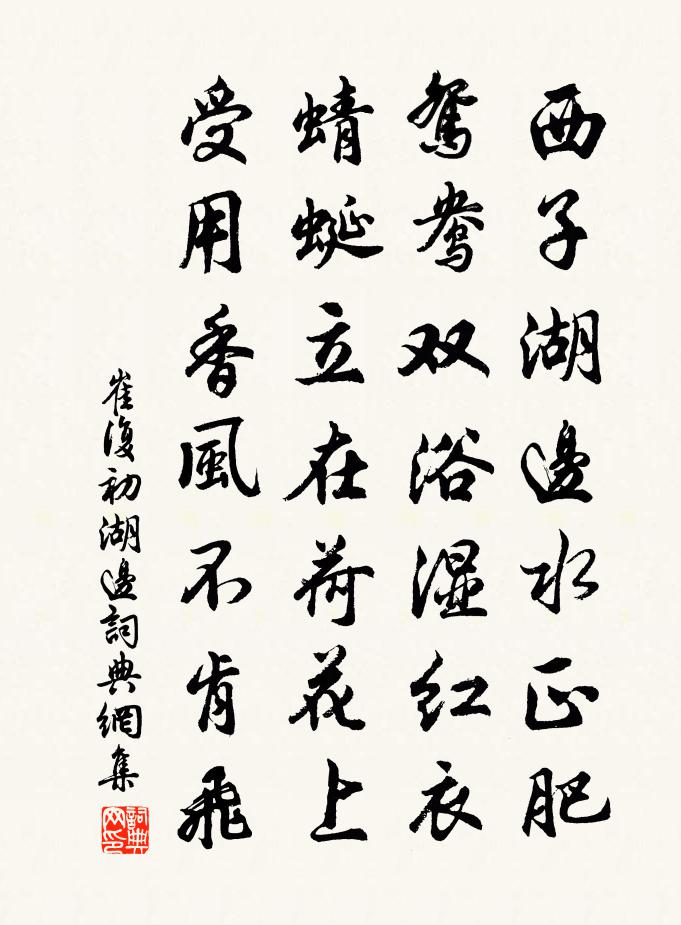 西子湖邊水正肥
鴛鴦双浴湿紅衣
蜻蜓立在荷花上
受用香風不肯飛
崔復初湖邊詞典網集
詞典网印